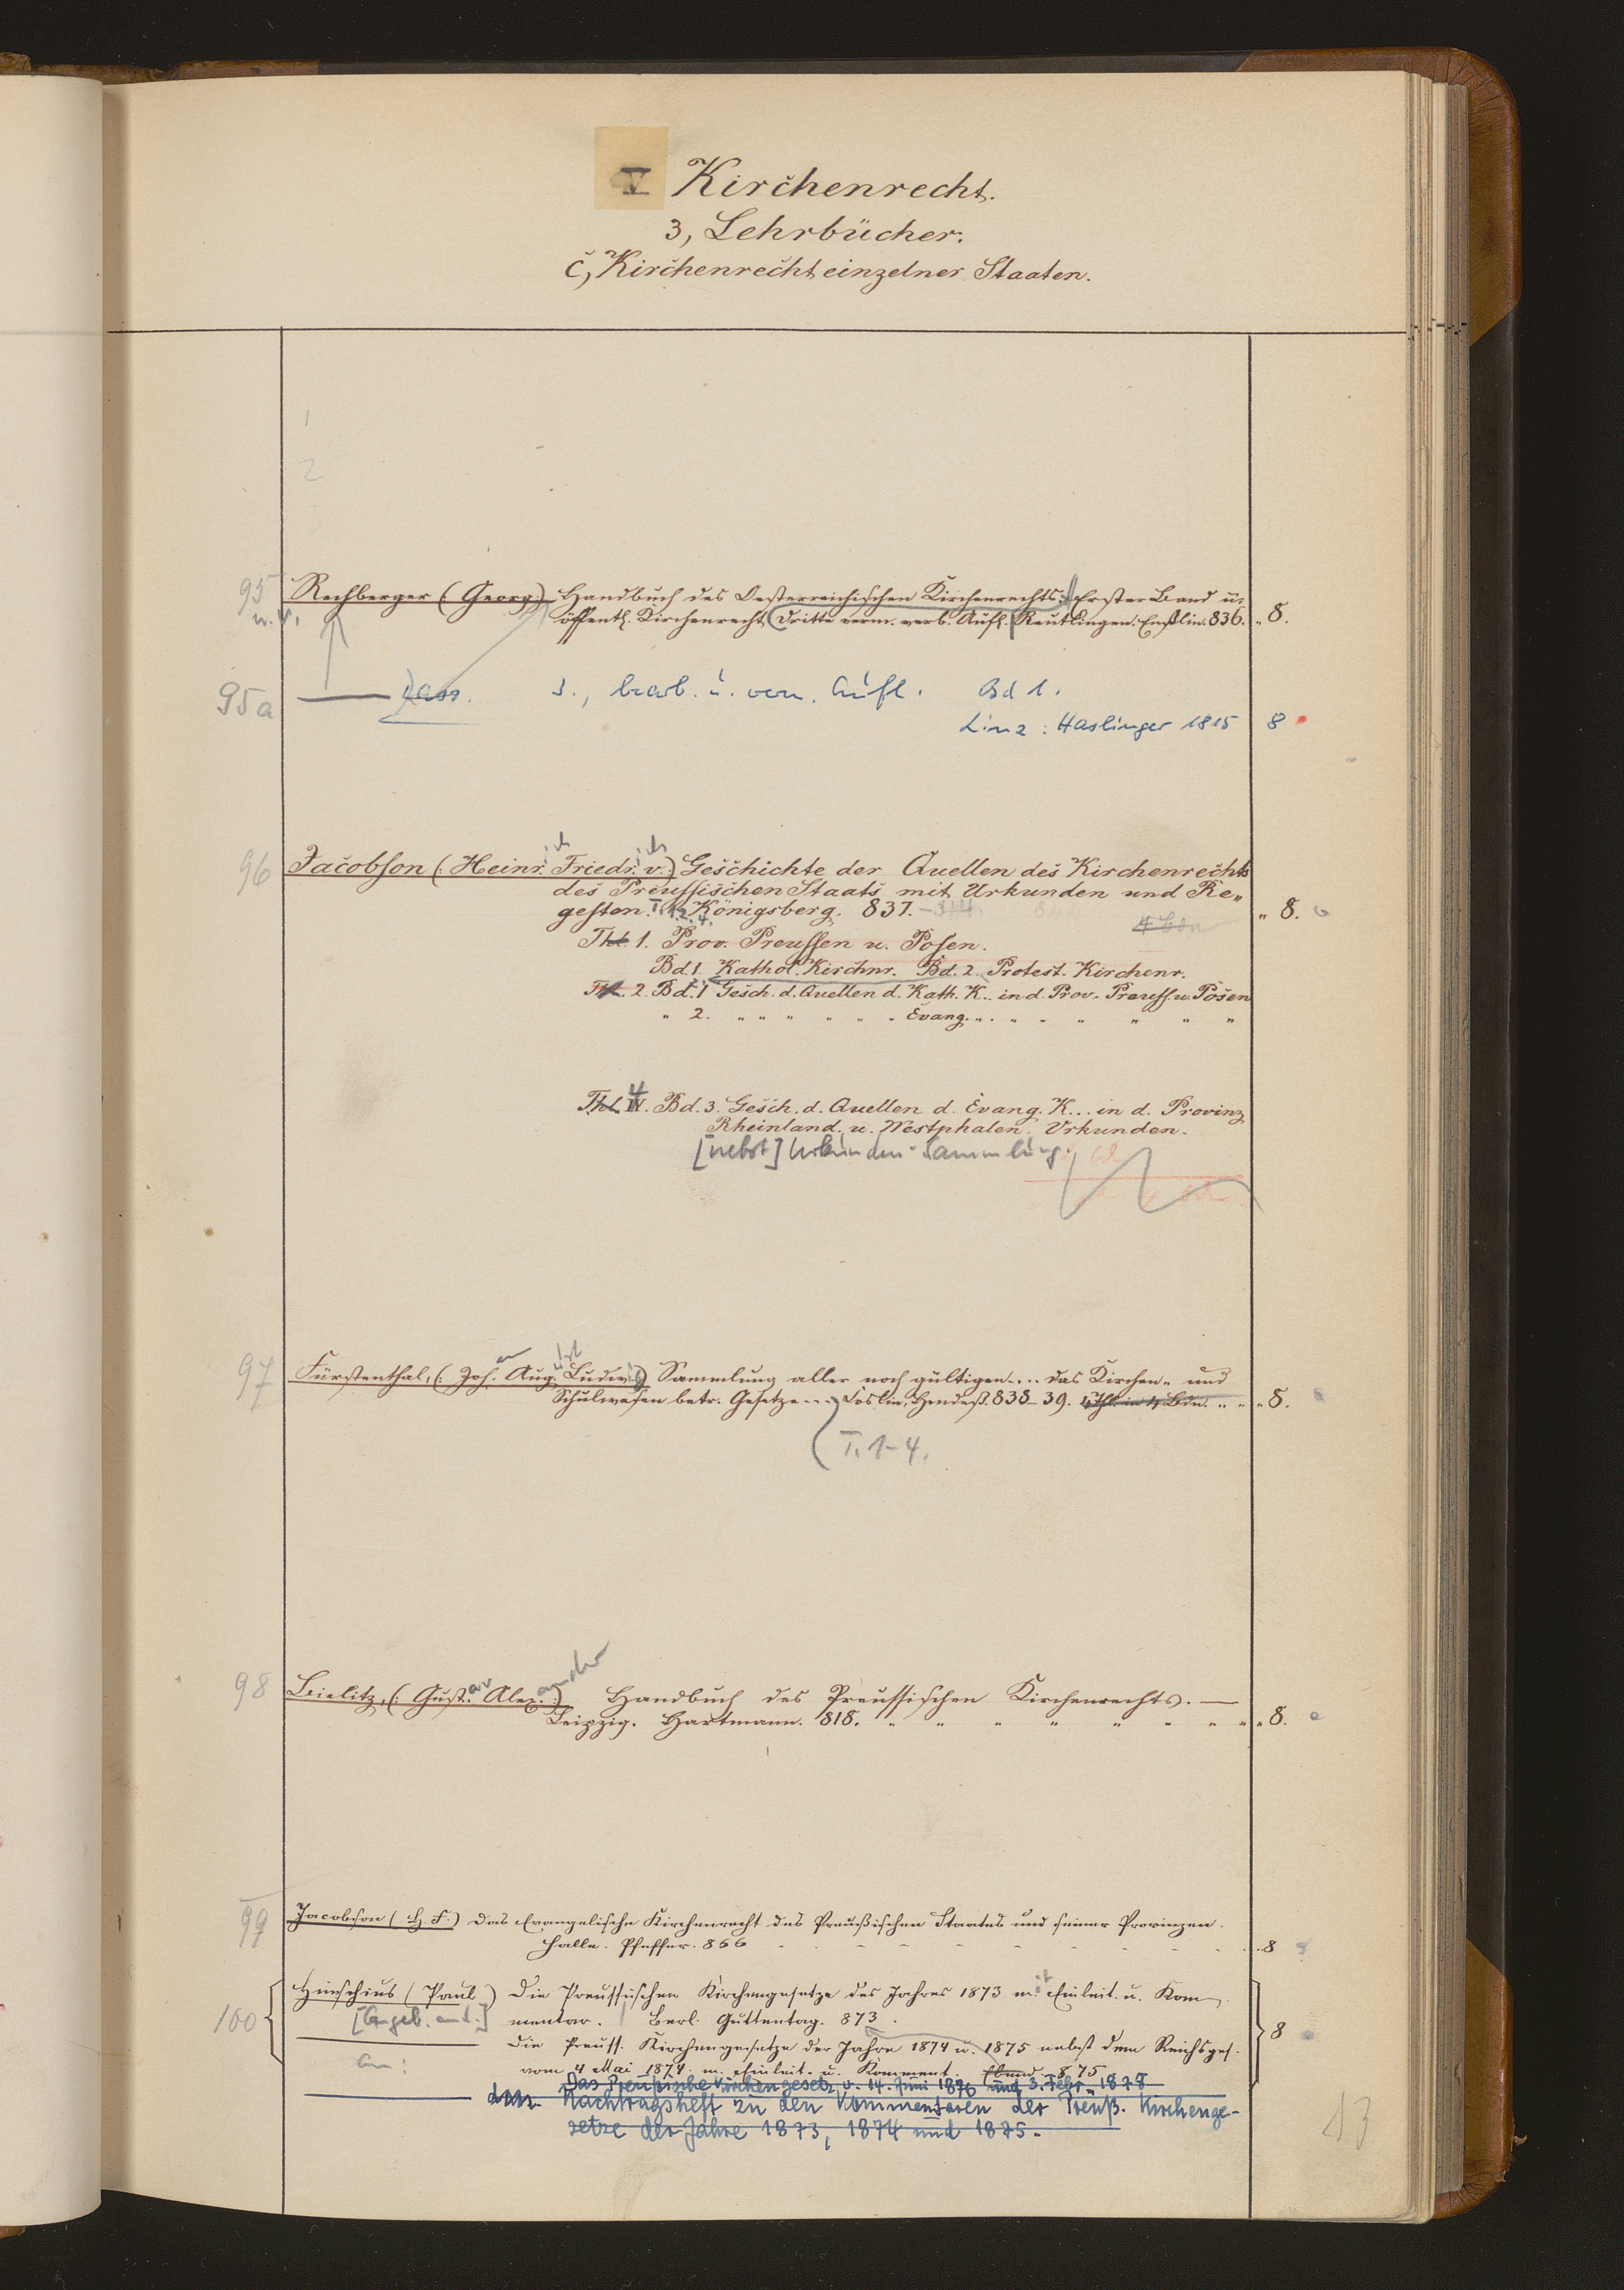 V Kirchenrecht.
3, Lehrbücher.
c, Kirchenrecht einzelner Staaten.
1
2
3
95 Rechberger (Georg) Handbuch des Oesterreichischen Kirchenrechts. Erster Band
öffentl. Kirchenrecht. Dritte verm. verb. Aufl. Reutlingen. Enßlin. 836. " 8.
95a 3., bearb. u. verm. Aufl. Bd 1.
Linz: Haslinger 1815 8
96 Jacobson (: Heinrich Friedrich v.:) Geschichte der Quellen des Kirchenrechts
des Preussischen Staats mit Urkunden und Re„
gesten. T. 1. 2. 4. Königsberg. 837. - 844. " 8.
4 Bde
Thl. 1. Prov. Preussen u. Posen.
Bd. 1. Kathol. Kirchnr. Bd. 2. Protest. Kirchenr.
Thl. 2. Bd. 1 Gesch. d. Quellen d. Kath. K.. in d. Prov. Preuss. u. Posen
" 2. " " " " " " Evang. " . " " " " " "
Thl. IV. 4 Bd. 3. Gesch. d. Quellen d. Evang. K... in d. Provinz
Rheinland. u. Westphalen. Urkunden.
[nebst] Urkunden-Sammlung.
97 Fürstenthal, (: Joh. Aug. Ludwig) Sammlung aller noch gültigen... das Kirchen- und
Schulwesen betr. Gesetze... Cöslin, Hendeß. 838-39. 4 Thl. in 4 Bdn. " " " 8.
T. 1-4.
98 Bielitz, (: Gustav Alexander :) Handbuch des Preussischen Kirchenrechts. —
Leipzig. Hartmann. 818. " " " " " " " " " 8.
99 Jacobson (H. F.) Das Evangelische Kirchenrecht des Preußischen Staates und seiner Provinzen.
Halle. Pfeffer. 866 8
100 Hinschius (Paul) Die Preussischen Kirchengesetze des Jahres 1873 mit Einleit. u. Kom„
[Angeb. an d.] mentar. Berl. Guttentag. 873.
Die Preuss. Kirchengesetze der Jahre 1874 u. 1875 nebst dem Reichsges. 8
an: vom 4 Mai 1874. m. Einleit. u. Komment. Ebend. 875
Das Preußische Kirchengesetz v. 14. Juni 1876 und 3. Febr. 1878
Nachtragsheft zu den Kommentaren der Preuß. Kirchenge-
setze der Jahre 1873, 1874 und 1875.
13